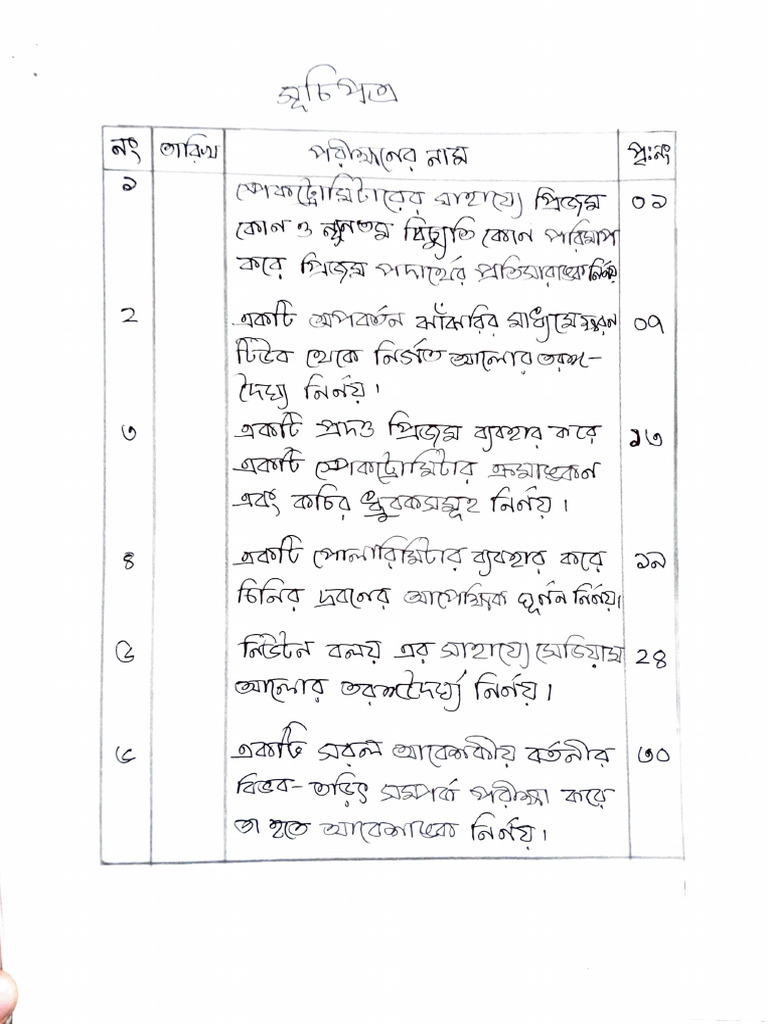 সূচিপত্র
নং তারিখ পরীক্ষনের নাম পৃঃনং
১ স্পেকট্রোমিটারের সাহায্যে প্রিজম ০১
কোন ও ন্যূনতম বিচ্যুতি কোন পরিমাপ
করে প্রিজম পদার্থের প্রতিসারাঙ্ক নির্নয়
২ একটি অপবর্তন ঝাঁঝরির মাধ্যমে ০৭
টিউব থেকে নির্গত আলোর তরঙ্গ-
দৈর্ঘ্য নির্নয়।
৩ একটি প্রদত্ত প্রিজম ব্যবহার করে ১৩
একটি স্পেকট্রোমিটার ক্রমাঙ্কন
এবং কচির ধ্রুবকসমূহ নির্নয়।
৪ একটি পোলারিমিটার ব্যবহার করে ১৯
চিনির দ্রবনের আপেক্ষিক ঘূর্নন নির্নয়।
৫ নিউটন বলয় এর সাহায্যে সেডিয়াম ২৪
আলোর তরঙ্গদৈর্ঘ্য নির্নয়।
৬ একটি সরল আবেশকীয় বর্তনীর ৩০
বিভব-তড়িৎ সম্পর্ক পরীক্ষা করে
তা হতে আবেশাঙ্ক নির্নয়।